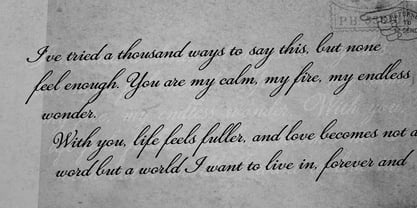 I've tried a thousand ways to say this, but none
feel enough. You are my calm, my fire, my endless
wonder.
With you, life feels fuller, and love becomes not a
word but a world I want to live in, forever and